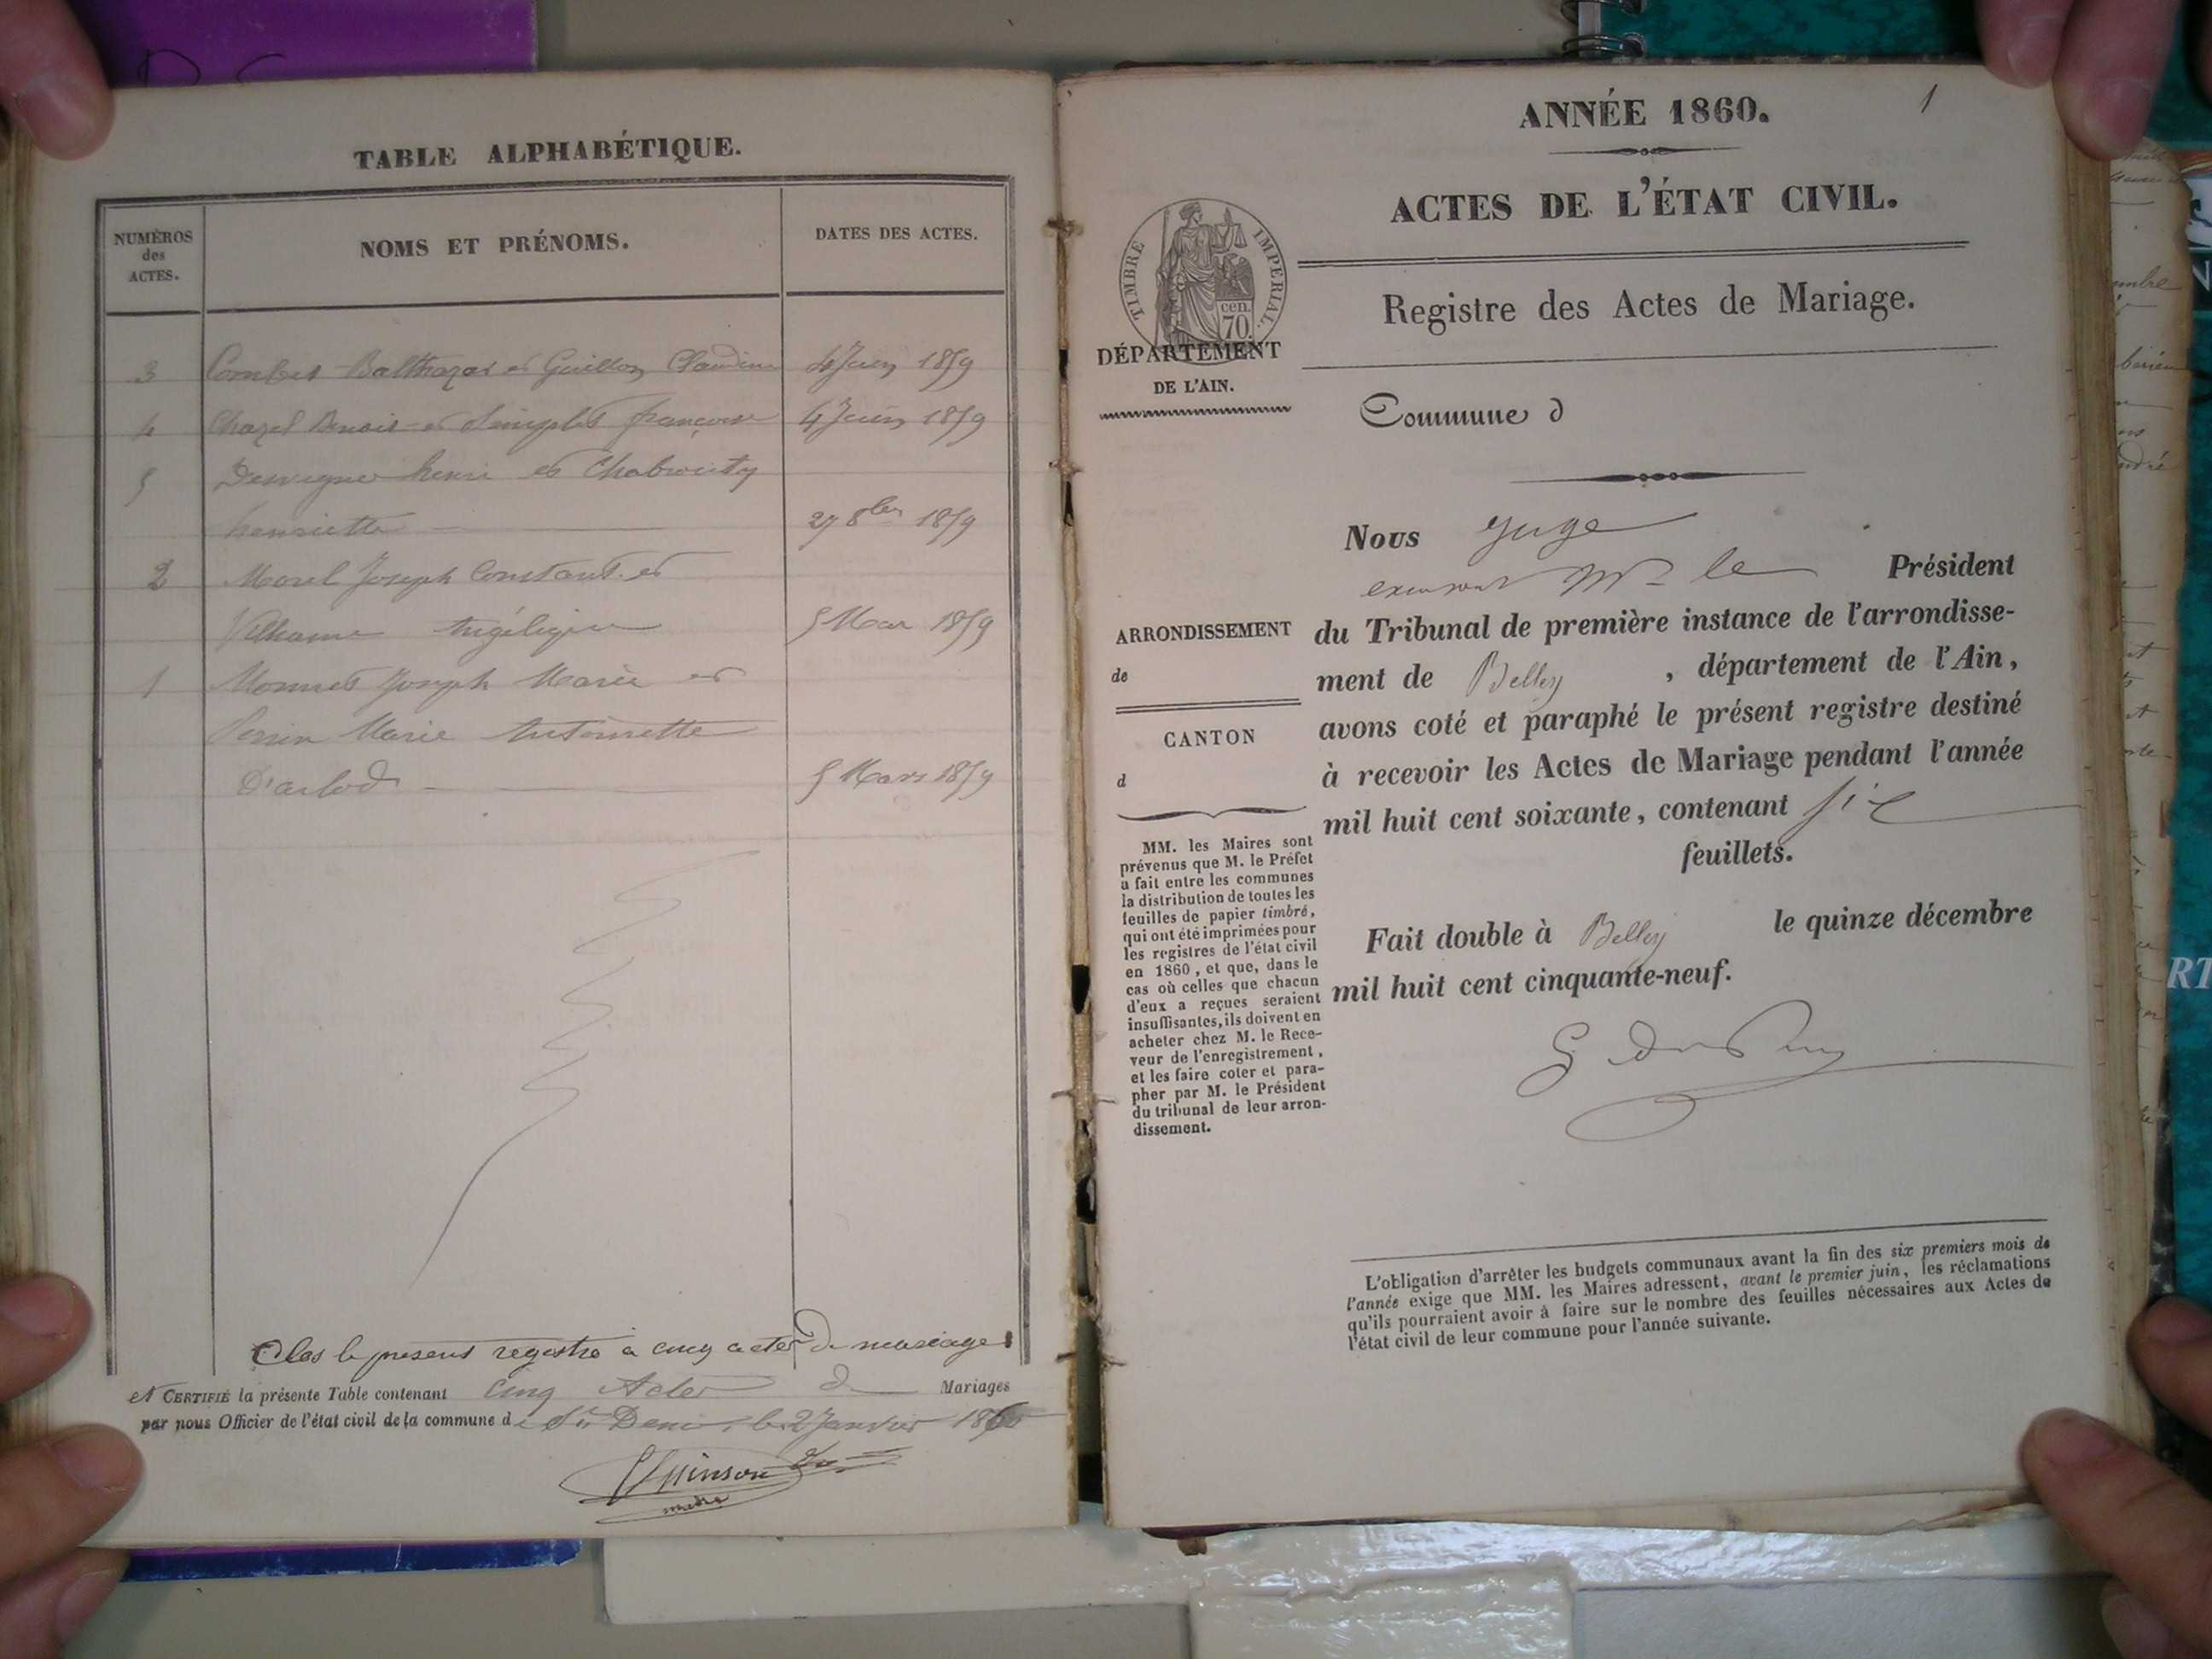 TABLE ALPHABÉTIQUE.
NUMÉROS
des
ACTES.
NOMS ET PRÉNOMS.
DATES DES ACTES.
3 Combet Balthazar et Guillon Claudine 4 Juin 1859
4 Chazel Benoit et françoise 4 Juin 1859
5 Desvignes henri et
henriette 27 8bre 1859
2 Morel Joseph Constant et
Angélique 5 Mars 1859
1 Monnet Joseph Marie et
Perrin Marie Antoinette
D'arlod 5 Mars 1859
Clos le présent registre à cinq actes de mariages
et CERTIFIÉ la présente Table contenant Cinq Actes de Mariages
par nous Officier de l'état civil de la commune de St Denis, le 2 Janvier 1860
ANNÉE 1860.
1
ACTES DE L'ÉTAT CIVIL.
TIMBRE IMPERIAL.
cen.
70.
Registre des Actes de Mariage.
DÉPARTEMENT
DE L'AIN.
Commune d
Nous Juge
Mr le Président
ARRONDISSEMENT
de
CANTON
d
du Tribunal de première instance de l'arrondisse-
ment de Belley , département de l'Ain,
avons coté et paraphé le présent registre destiné
à recevoir les Actes de Mariage pendant l'année
mil huit cent soixante, contenant six
feuillets.
Fait double à Belley le quinze décembre
mil huit cent cinquante-neuf.
MM. les Maires sont
prévenus que M. le Préfet
a fait entre les communes
la distribution de toutes les
feuilles de papier timbré,
qui ont été imprimées pour
les registres de l'état civil
en 1860, et que, dans le
cas où celles que chacun
d'eux a reçues seraient
insuffisantes, ils doivent en
acheter chez M. le Rece-
veur de l'enregistrement,
et les faire coter et para-
pher par M. le Président
du tribunal de leur arron-
dissement.
L'obligation d'arrêter les budgets communaux avant la fin des six premiers mois de
l'année exige que MM. les Maires adressent, avant le premier juin, les réclamations
qu'ils pourraient avoir à faire sur le nombre des feuilles nécessaires aux Actes de
l'état civil de leur commune pour l'année suivante.